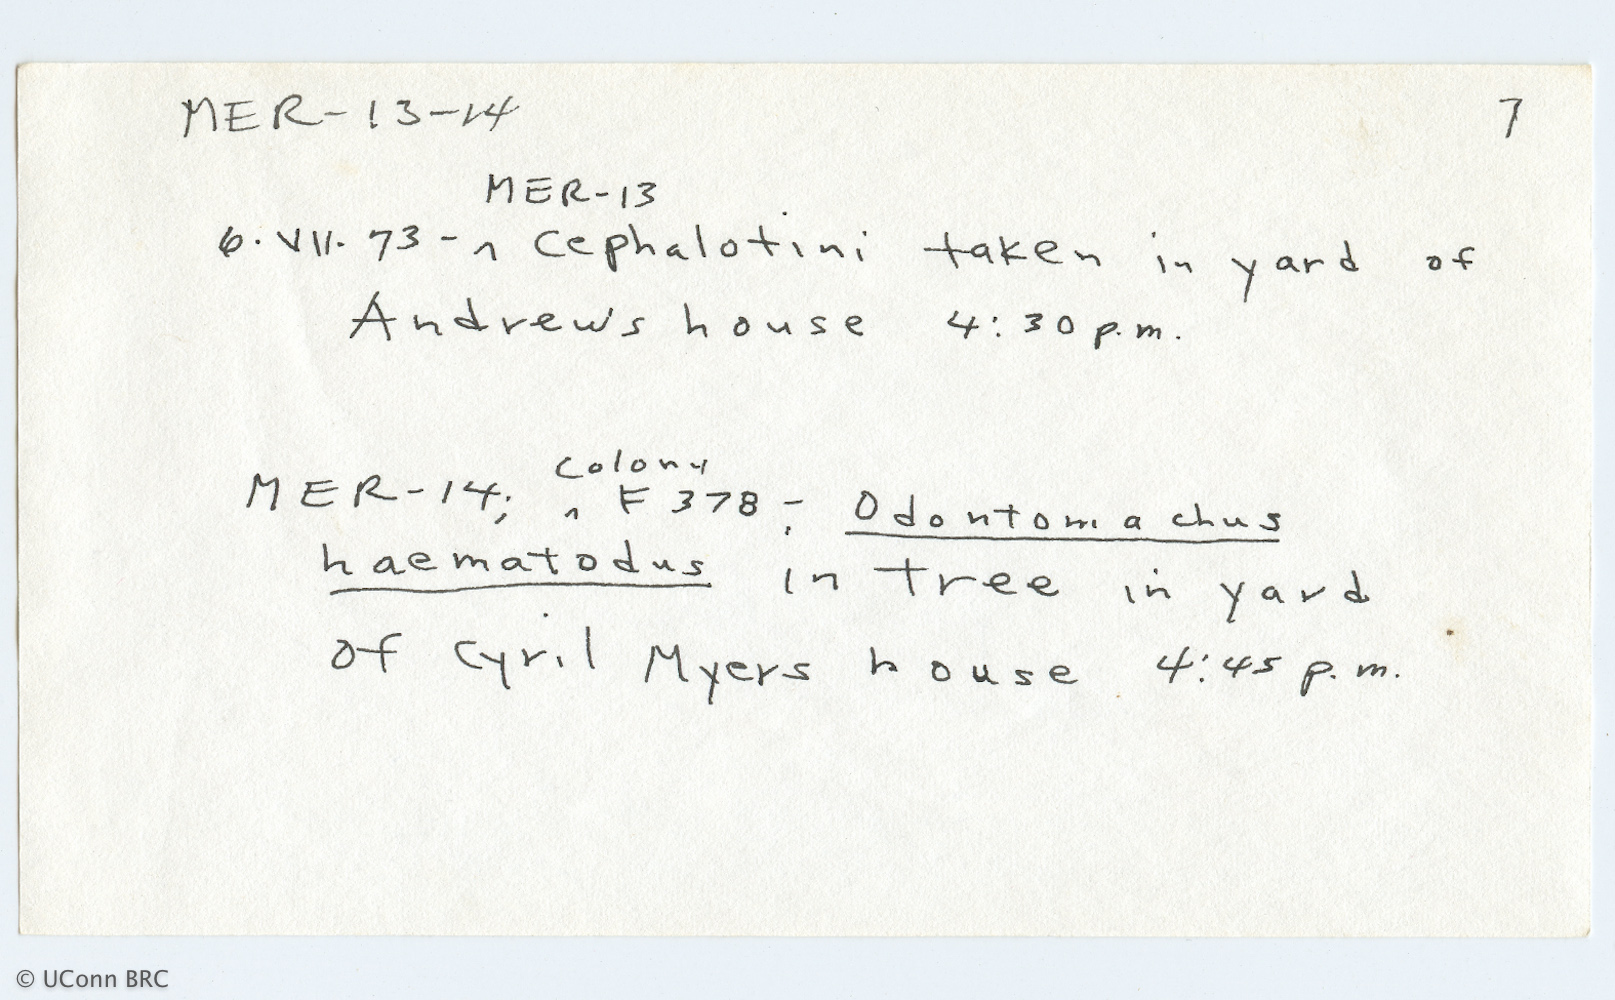 MER-13-14
7
MER-13
6.VII.73-^ Cephalotini taken in yard of
Andrew's house 4:30 p.m.
colony
MER-14; ^ F 378; Odontomachus
haematodus in tree in yard
of Cyril Myers house 4:45 p.m.
© UConn BRC